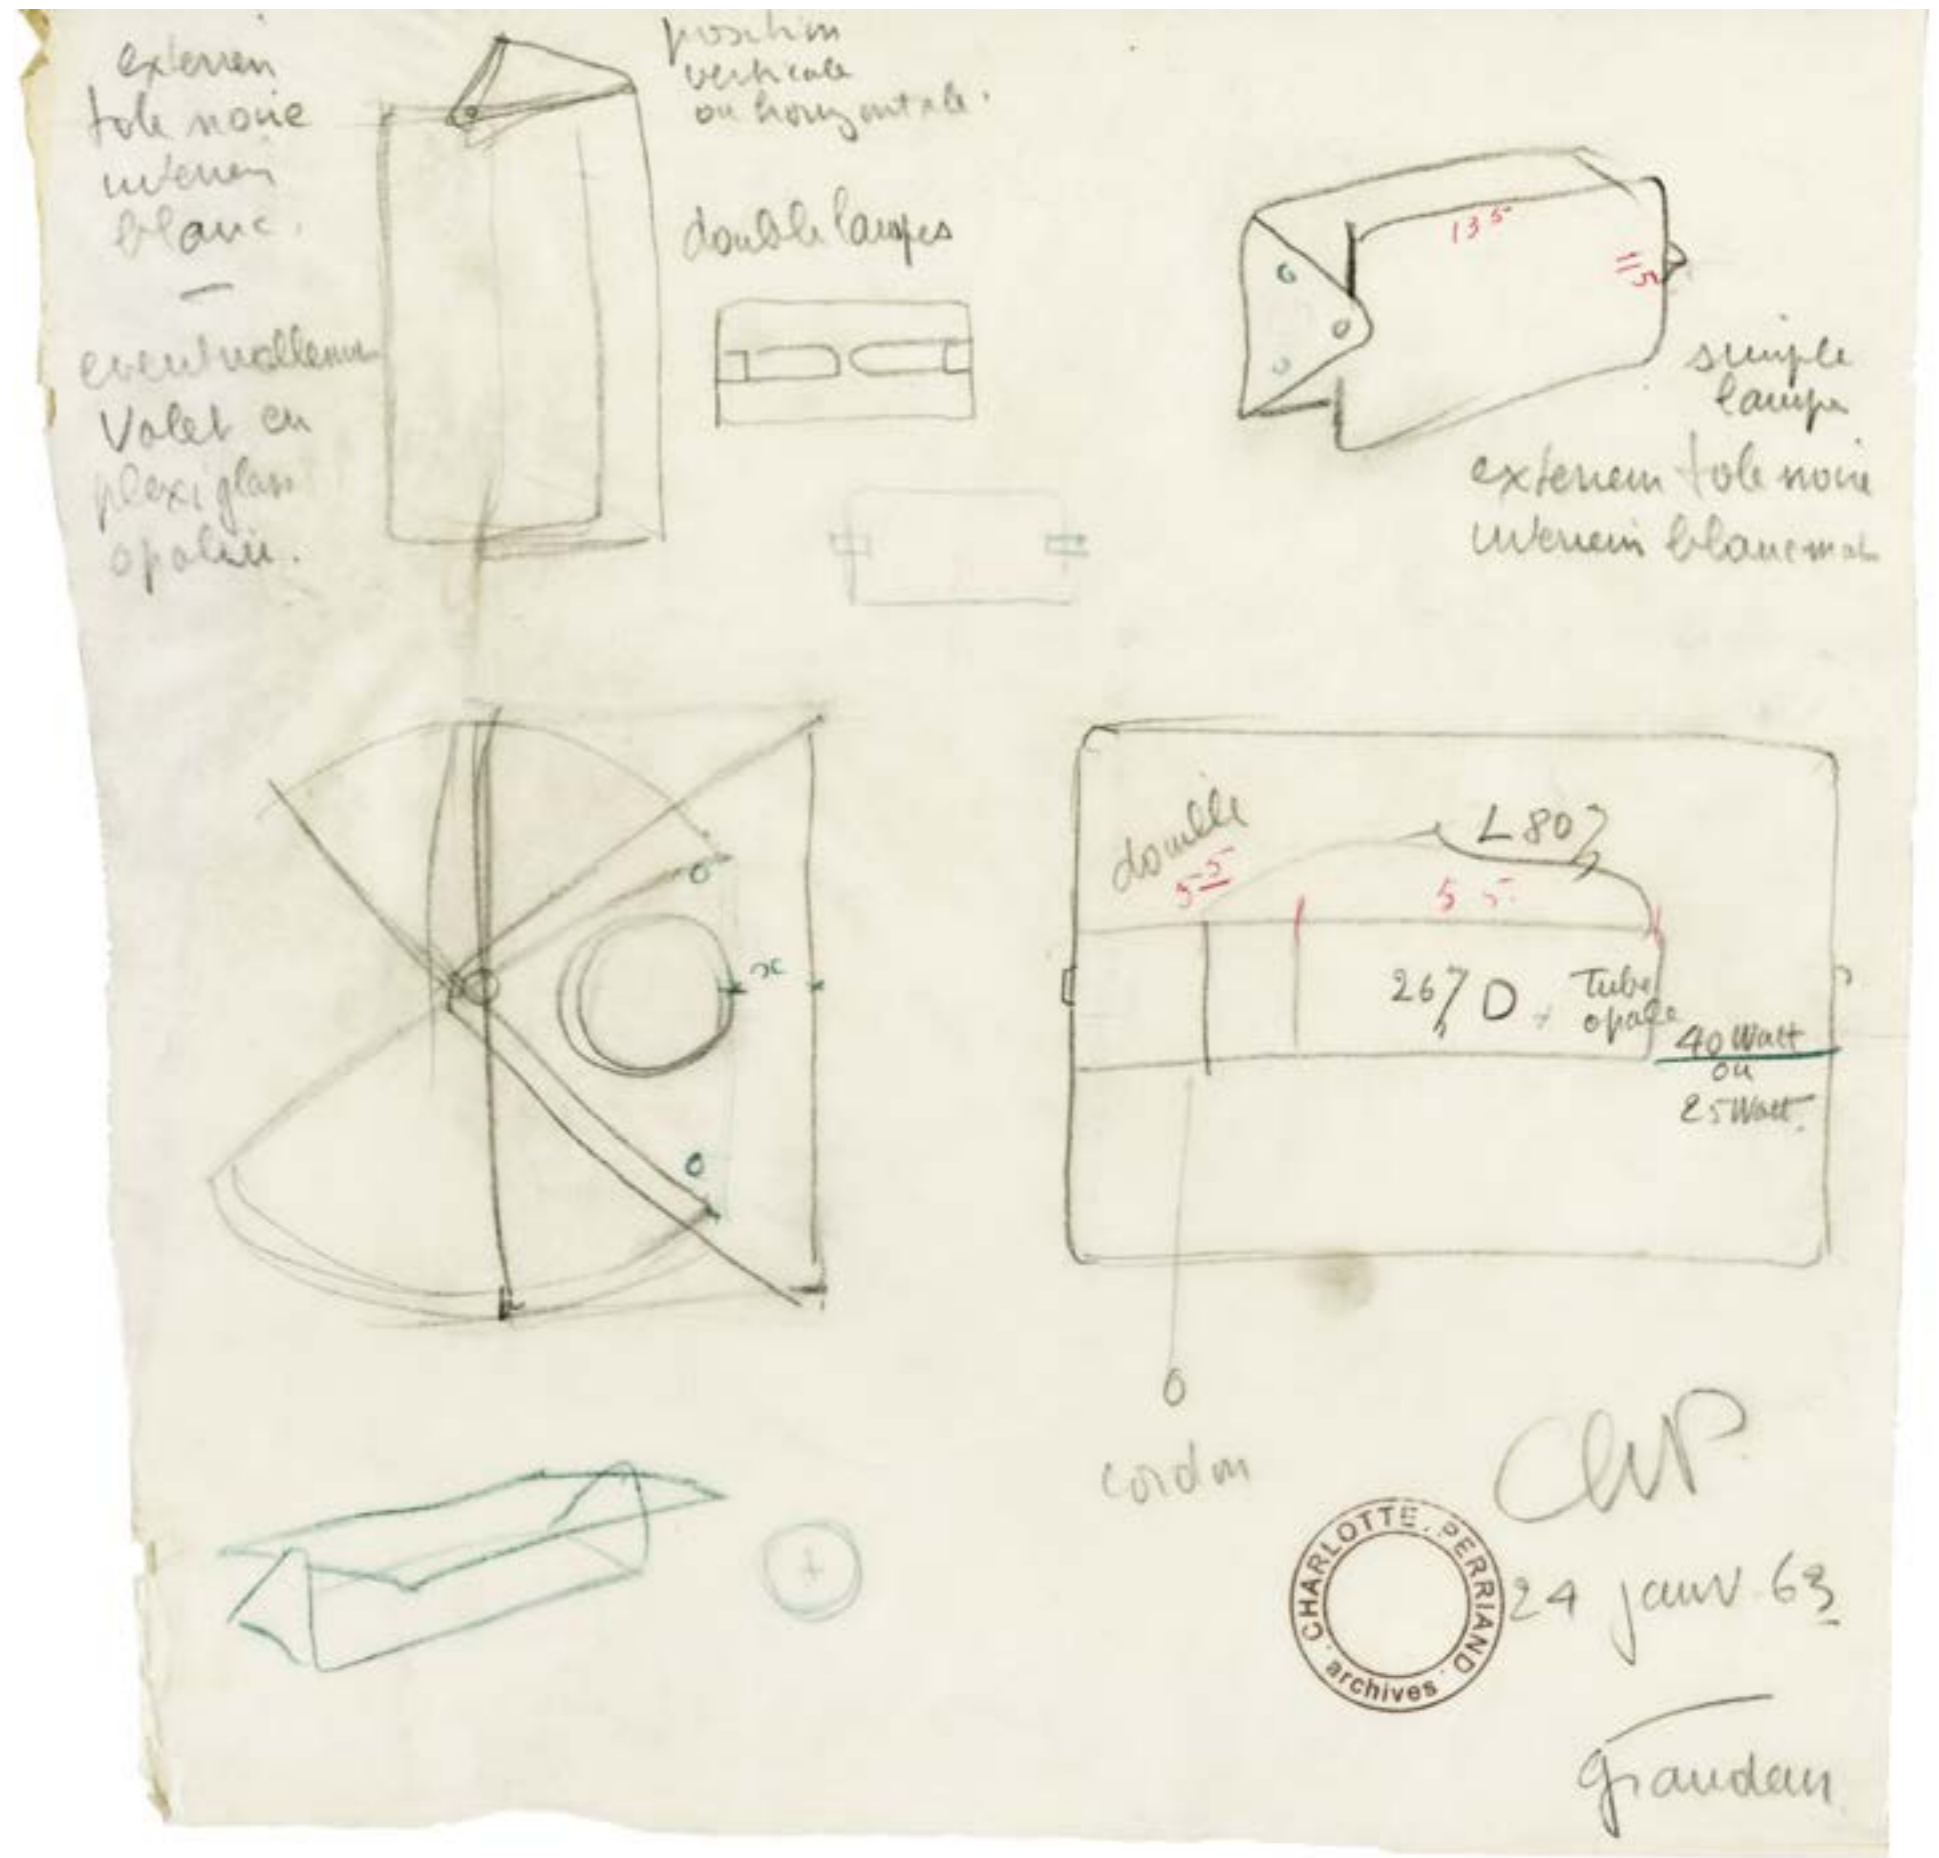 exterieur
tole noire
interieur
blanc.
eventuellement
Volet en
plexiglass
opalin.
position
verticale
ou horizontale.
double lampes
135
115
simple
lampe
exterieur tole noire
interieur blanc mat
double
55
L 80
55
26 D
Tube
opale
40 Watt
ou
25 Watt.
x
cordon
ChP
CHARLOTTE PERRIAND
archives
24 janv. 63
grandeur